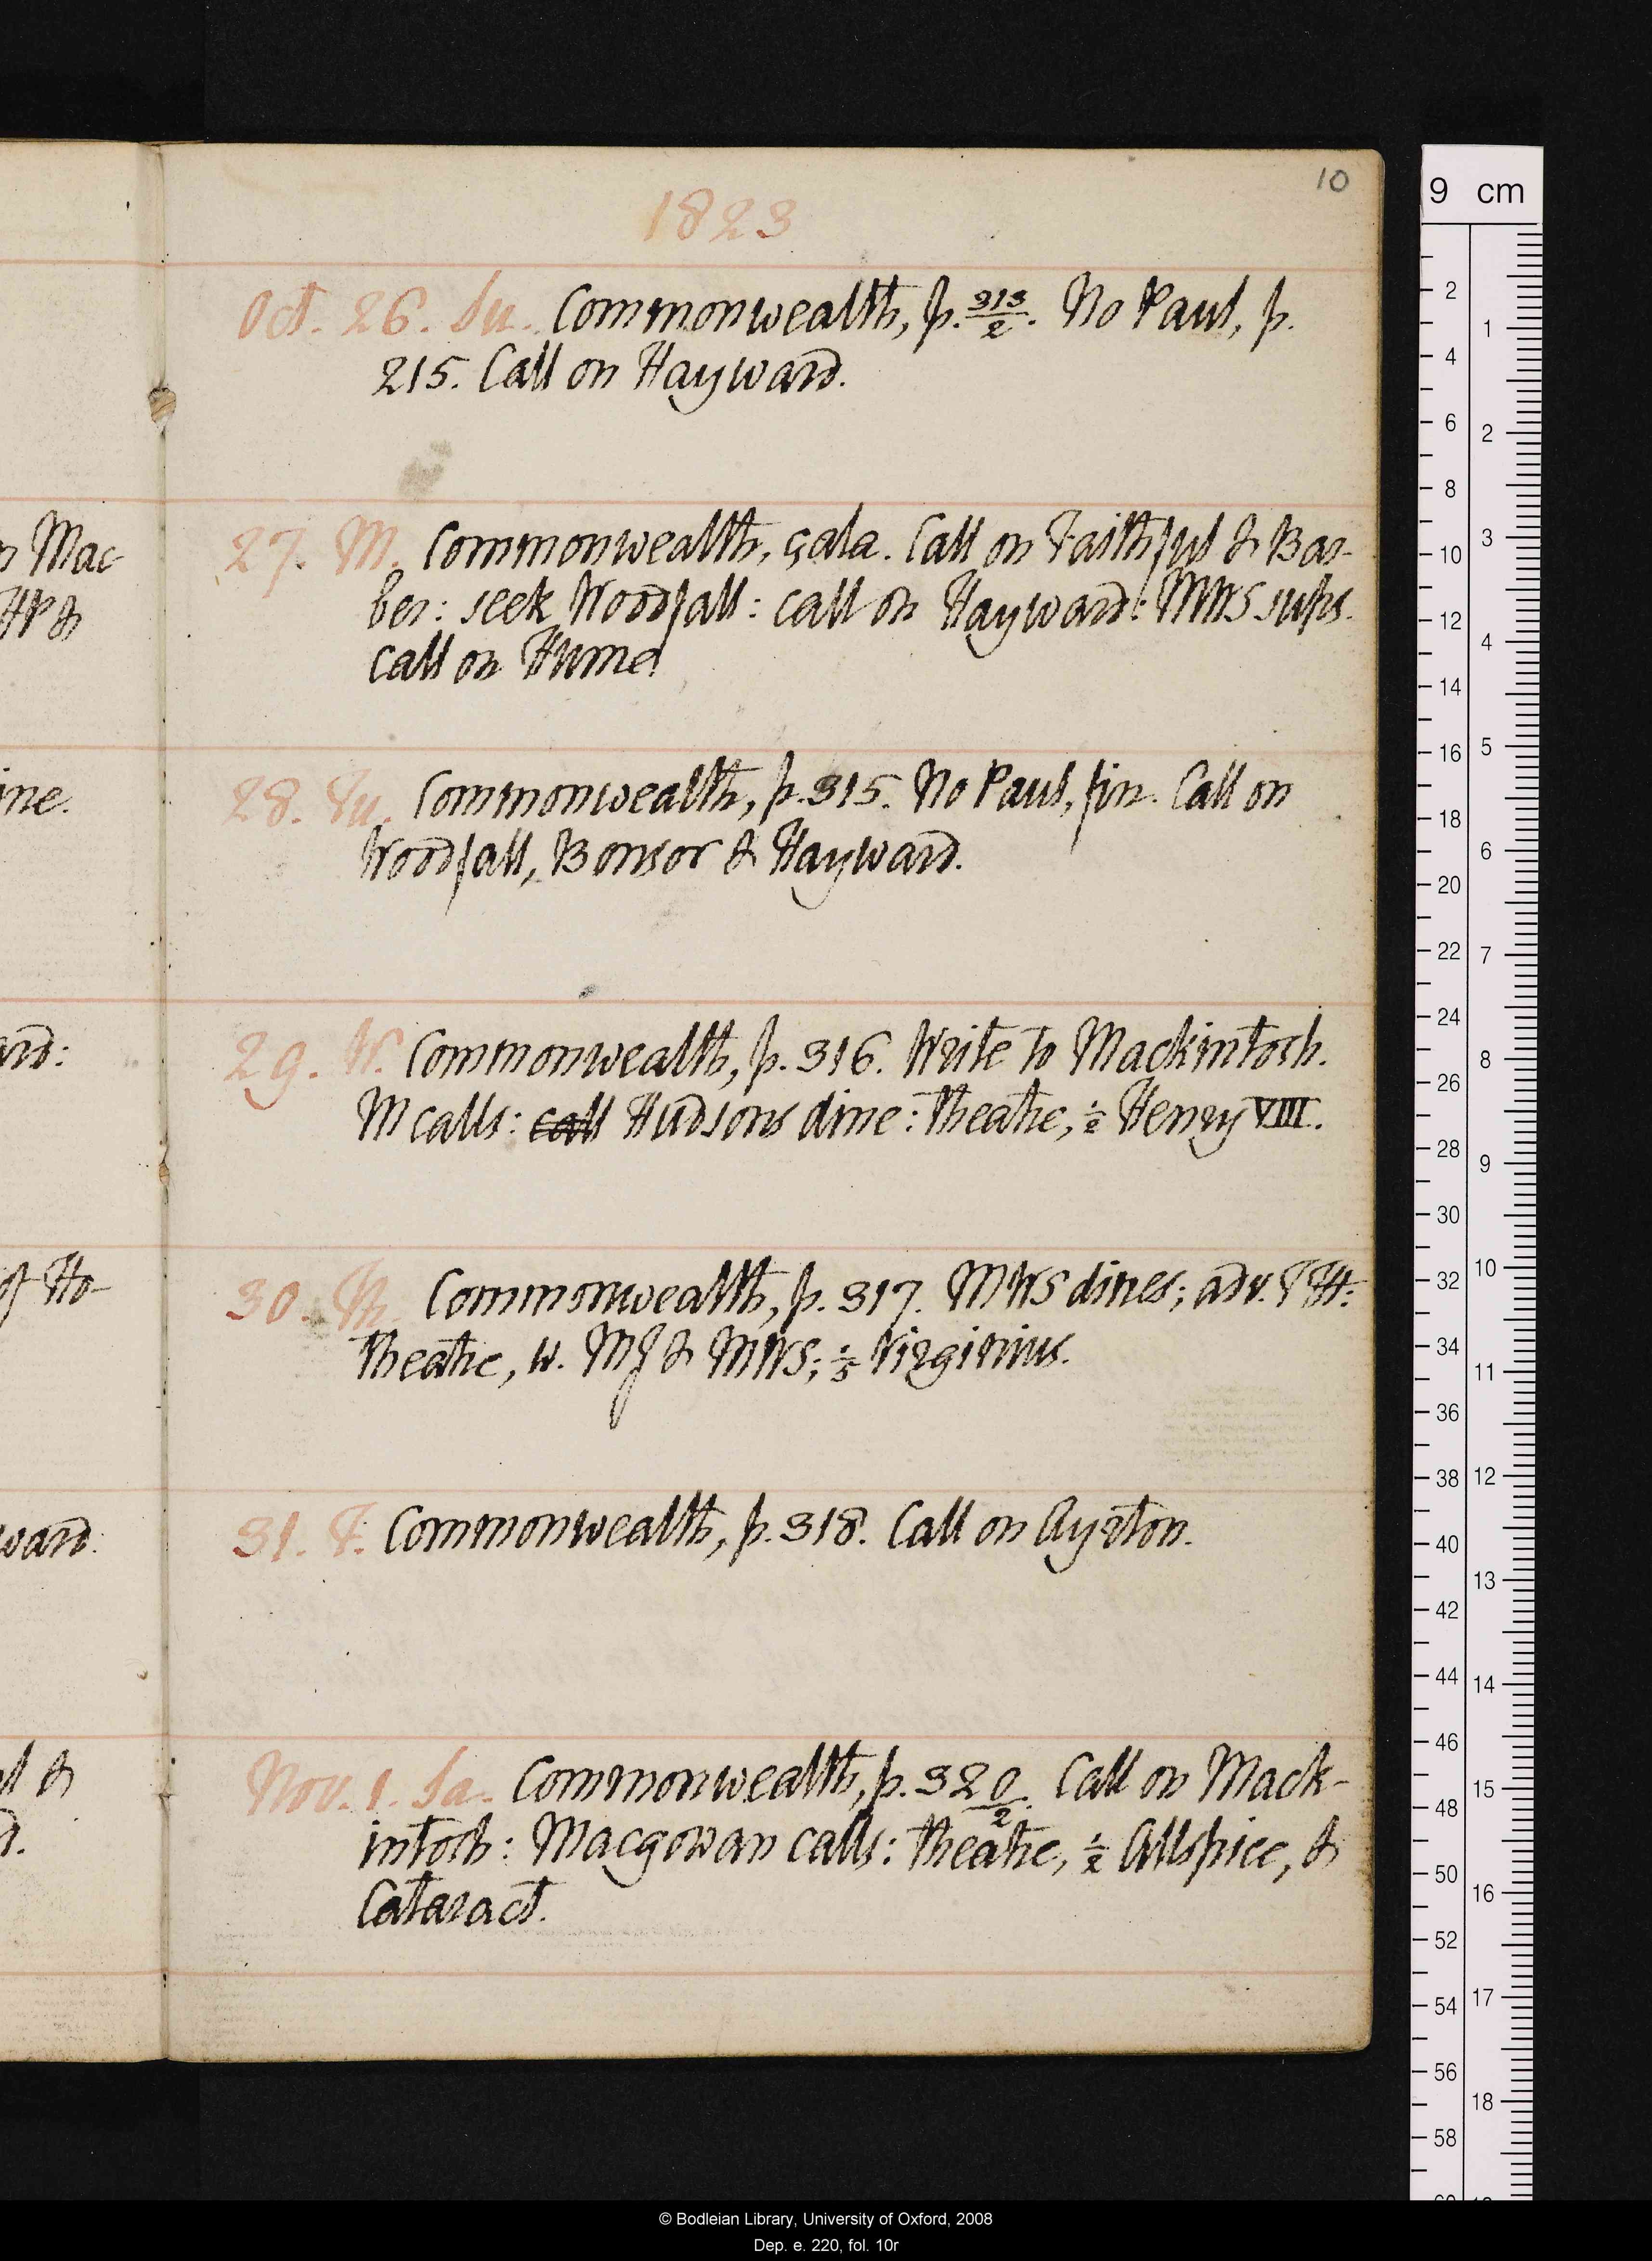 10
1823
Oct. 26. Su. Commonwealth, p. 313/2. No Paul, p.
215. Call on Hayward.
27. M. Commonwealth, çala. Call on Faithful & Bar-
ber: seek Woodfall: call on Hayward: MWS sups.
call on Hume
28. Tu. Commonwealth, p. 315. No Paul, fin. Call on
Woodfall, Bonsor & Hayward.
29. W. Commonwealth, p. 316. Write to Mackintosh.
M calls: call Hudsons dine: Theatre, ½ Henry VIII.
30. Th. Commonwealth, p. 317. MWS dines; adv. TH:
Theatre, w. MJ & MWS; ⅕ Virginius.
31. F. Commonwealth, p. 318. Call on Ayrton.
Nov. 1. Sa. Commonwealth, p. 320/2. Call on Mack-
intosh: Macgowan calls: Theatre, ½ Allspice, &
Cataract.
n Mac-
HP &
ine.
ard:
of Ho-
ward:
&
9 cm
2
4
6
8
10
12
14
16
18
20
22
24
26
28
30
32
34
36
38
40
42
44
46
48
50
52
54
56
58
1
2
3
4
5
6
7
8
9
10
11
12
13
14
15
16
17
18
© Bodleian Library, University of Oxford, 2008
Dep. e. 220, fol. 10r